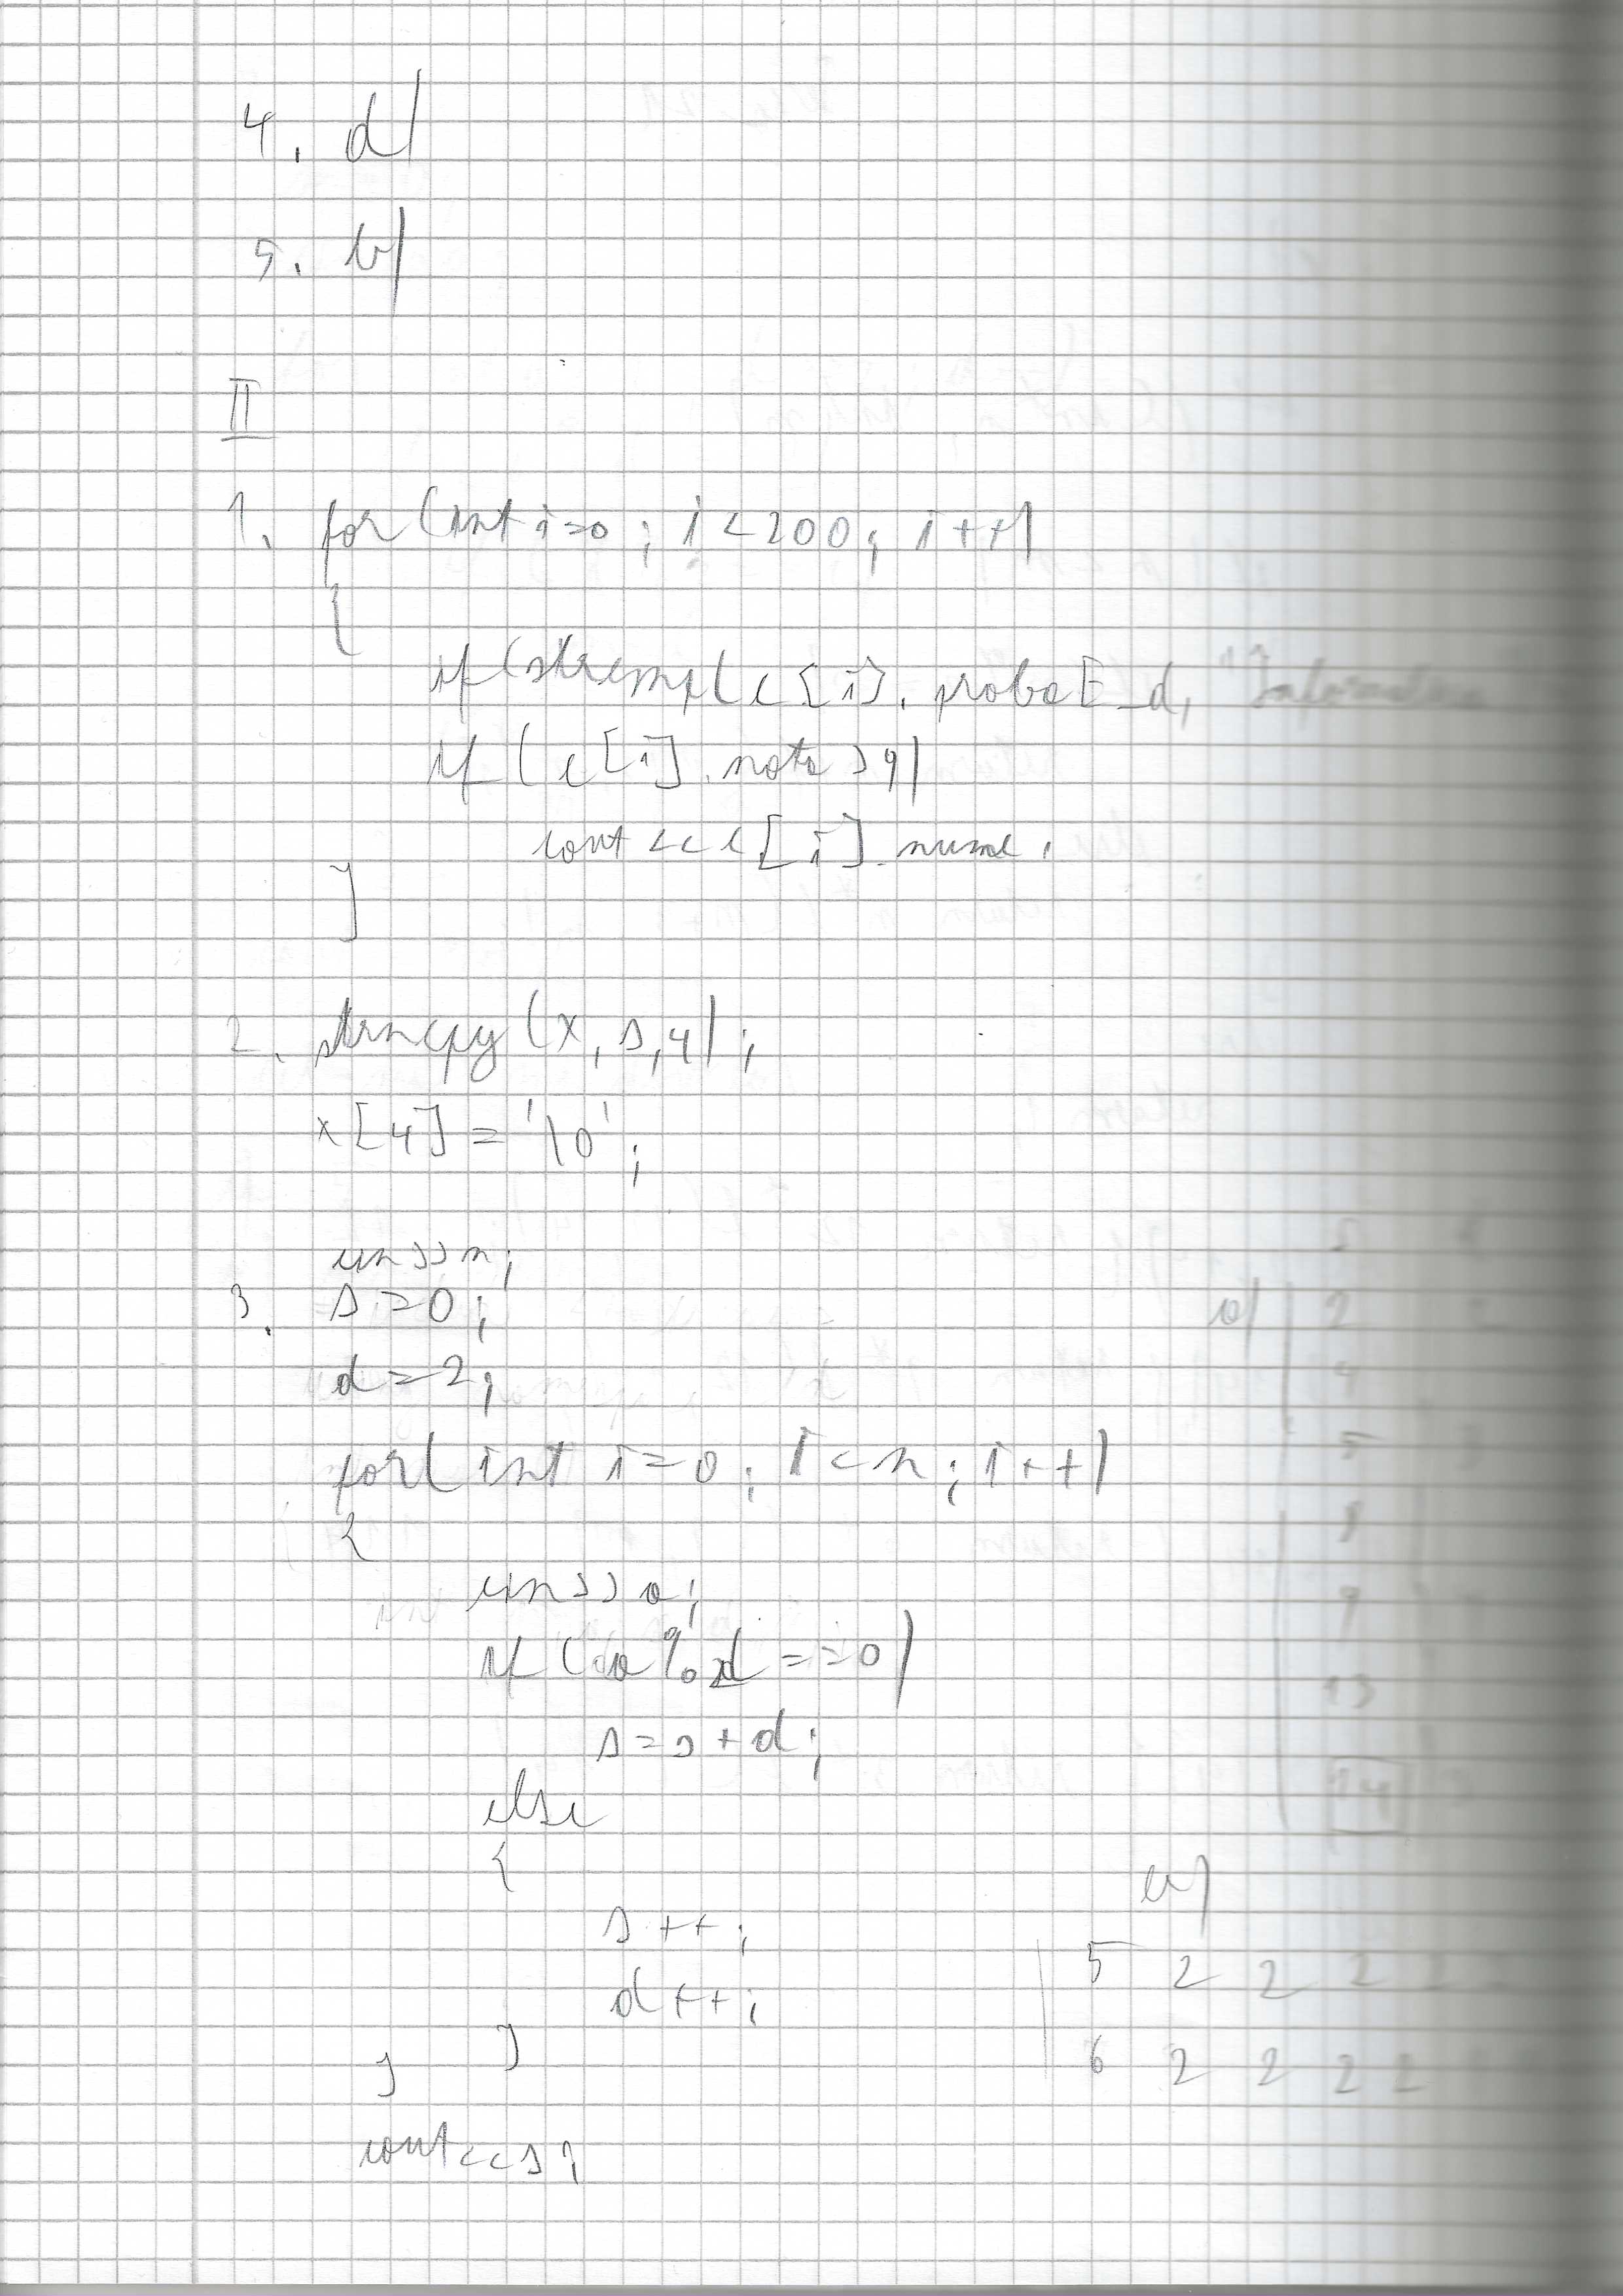 4. d)
5. b)
II
1. for (int i=0; i<200; i++)
{
if (strcmp(c[i].probaE_d, "Informatica
if (c[i].nota>9)
cout<<c[i].nume.
}
2. strncpy(x,s,4);
x[4]='\0';
cin>>n;
3. s=0;
d=2;
for(int i=0; i<n; i++)
{
cin>>a;
if (a%d==0)
s=s+d;
else
{
s++;
d++;
}
}
cout<<s;
a)
2
4
5
8
9
13
14
b)
5 2 2 2 2
6 2 2 2 2